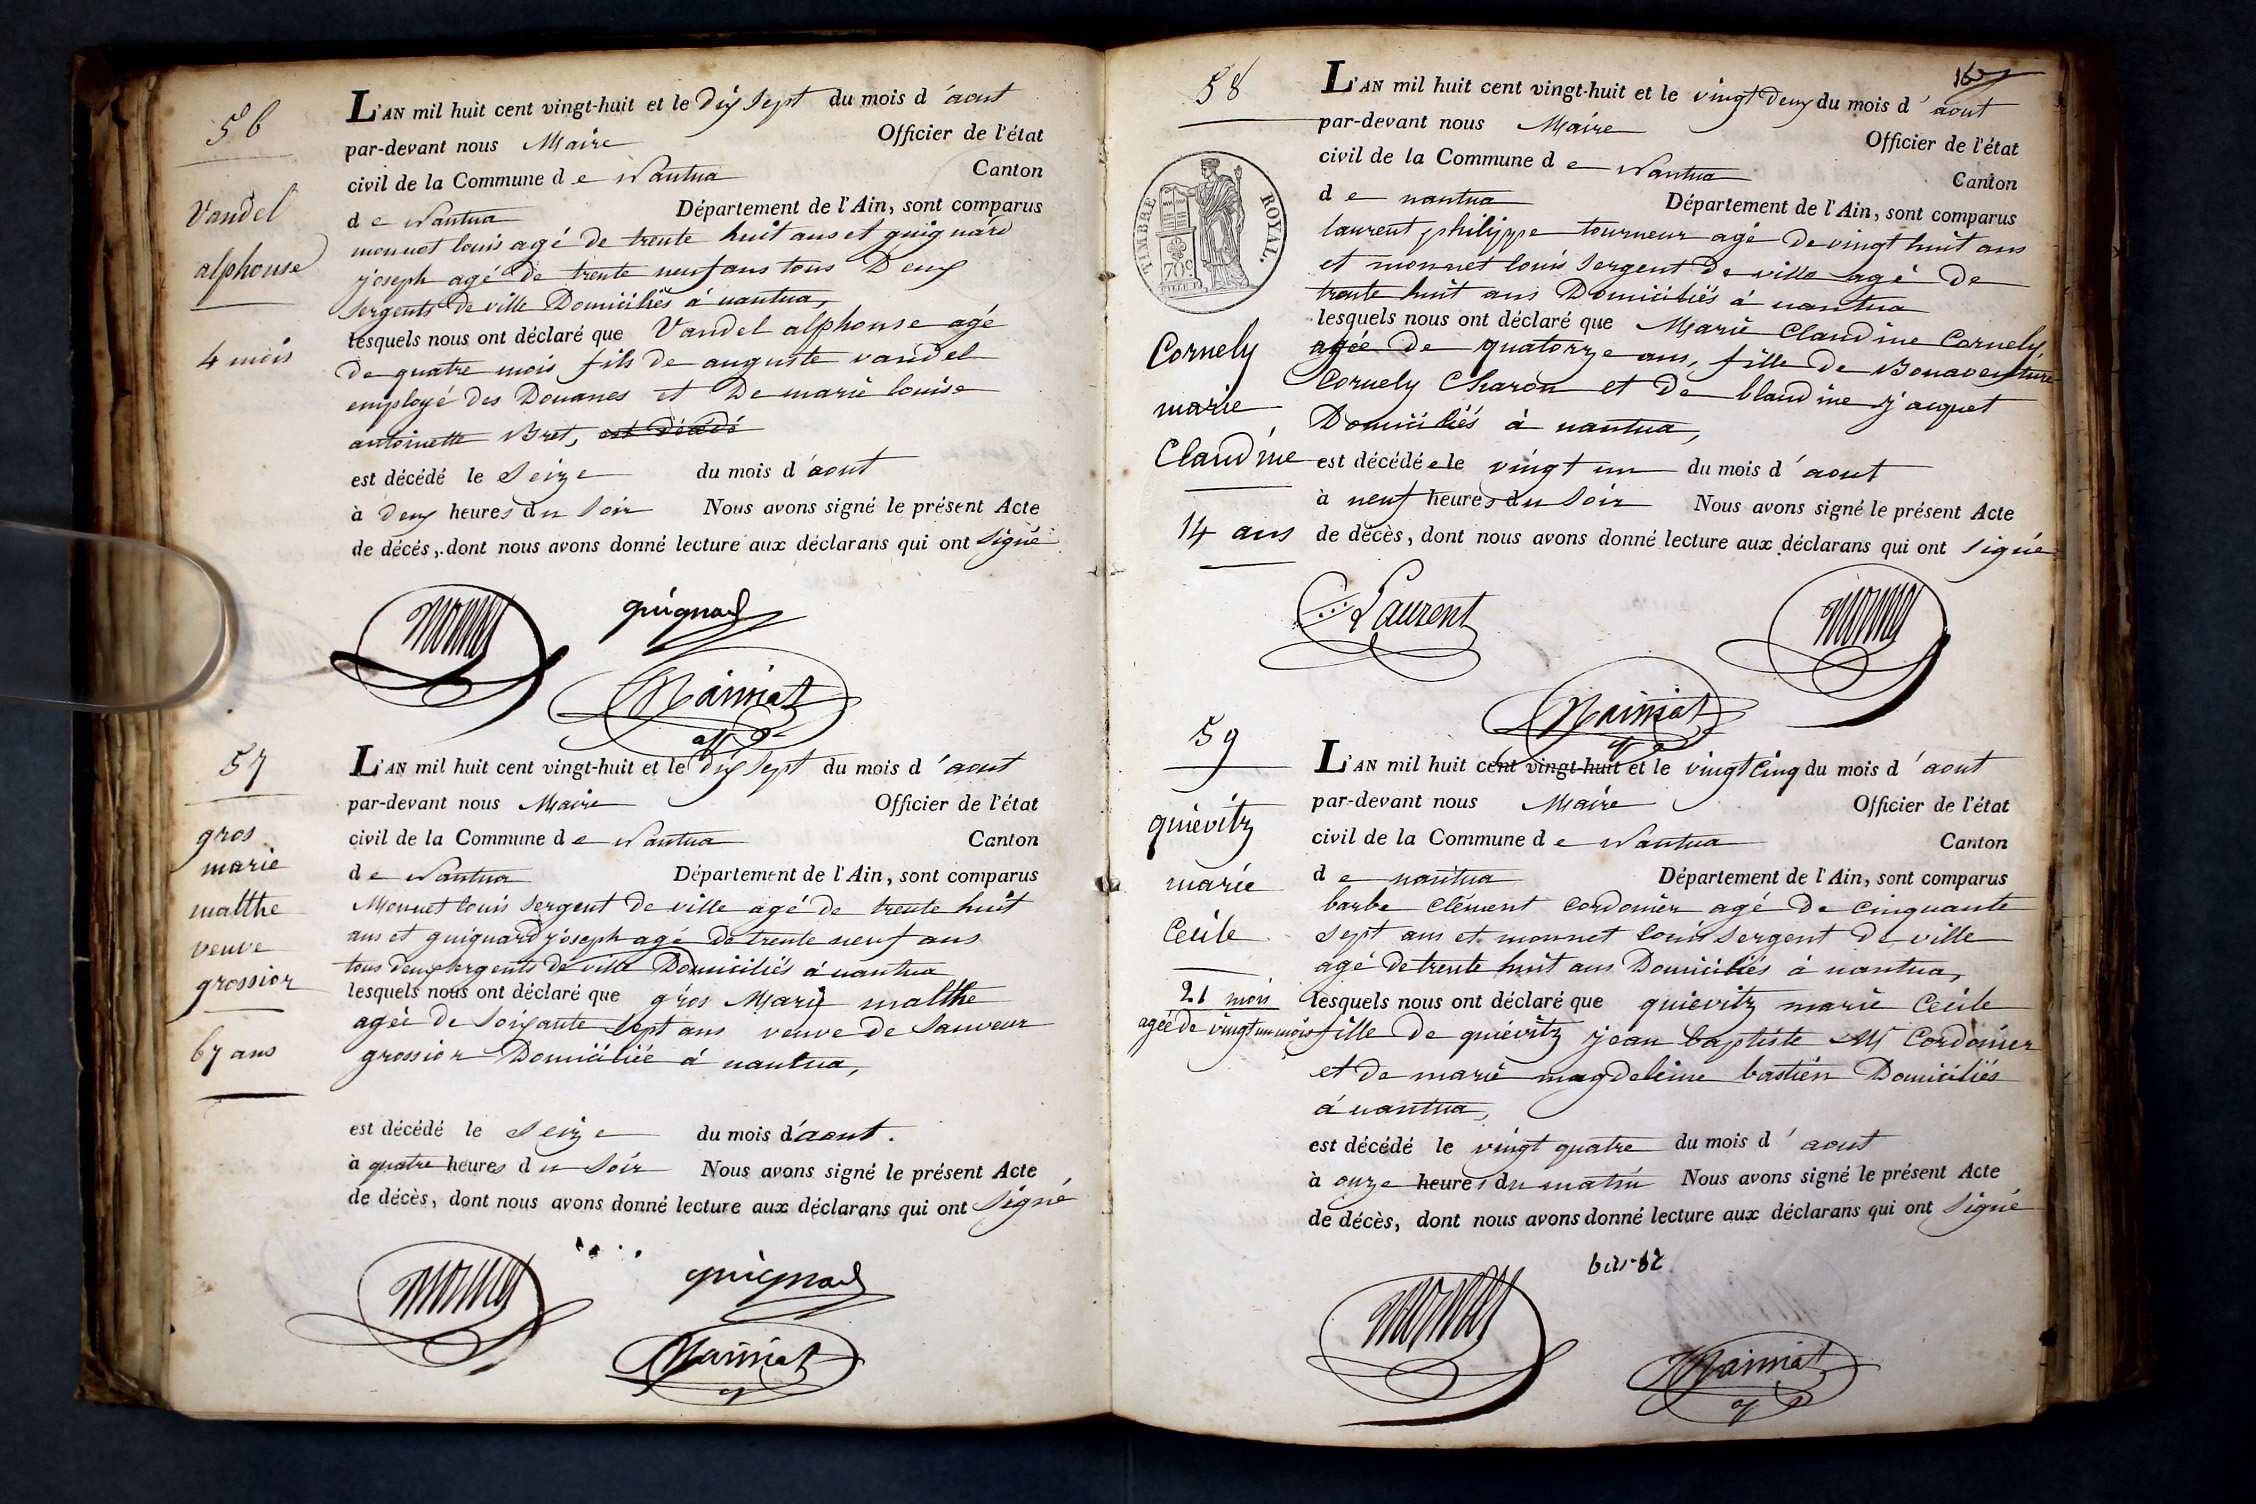 56
Vandel
alphonse
4 mois
L'AN mil huit cent vingt-huit et le dix sept du mois d'aout
par-devant nous Maire Officier de l'état
civil de la Commune de Nantua Canton
de Nantua Département de l'Ain, sont comparus
monnet louis agé de trente huit ans et guignard
joseph agé de trente neuf ans tous Deux
sergents de ville Domiciliés à nantua,
lesquels nous ont déclaré que Vandel alphonse agé
de quatre mois fils de auguste vandel
employé des Douanes et De marie louise
antoinette Bret, est décédé
est décédé le Seize du mois d'aout
à deux heures du soir Nous avons signé le présent Acte
de décès, dont nous avons donné lecture aux déclarans qui ont signé
monnet guignard
Mainiat
57
gros
marie
malthe
veuve
grossior
67 ans
L'AN mil huit cent vingt-huit et le dix sept du mois d'aout
par-devant nous Maire Officier de l'état
civil de la Commune de Nantua Canton
de Nantua Département de l'Ain, sont comparus
Monnet louis sergent de ville agé de trente huit
ans et guignard joseph agé de trente neuf ans
tous deux sergents de ville Domiciliés à nantua
lesquels nous ont déclaré que gros Marie malthe
agée de soixante sept ans veuve de Sauveur
grossior Domiciliée à nantua,
est décédé le Seize du mois d'aout.
à quatre heures du soir Nous avons signé le présent Acte
de décès, dont nous avons donné lecture aux déclarans qui ont signé
monnet guignard
Mainiat
58
TIMBRE ROYAL.
70c
Cornely
marie
Claudine
14 ans
L'AN mil huit cent vingt-huit et le vingt deux du mois d'aout
par-devant nous Maire Officier de l'état
civil de la Commune de Nantua Canton
de nantua Département de l'Ain, sont comparus
laurent philippe tourneur agé de vingt huit ans
et monnet louis sergent de ville agé de
trente huit ans Domiciliés à nantua
lesquels nous ont déclaré que Marie Claudine Cornely,
agée de quatorze ans, fille de Bonaventure
Cornely Charon et de blandine jacquet
Domiciliés à nantua,
est décédée le vingt un du mois d'aout
à neuf heures du soir Nous avons signé le présent Acte
de décès, dont nous avons donné lecture aux déclarans qui ont signé
Laurent monnet
Mainiat
59
quiévitz
marie
Cécile
21 mois
agée de vingt un mois
L'AN mil huit cent vingt-huit et le vingt cinq du mois d'aout
par-devant nous Maire Officier de l'état
civil de la Commune de Nantua Canton
de nantua Département de l'Ain, sont comparus
barbe clément cordonier agé de cinquante
sept ans et monnet louis sergent de ville
agé de trente huit ans Domiciliés à nantua,
lesquels nous ont déclaré que quiévitz marie Cécile
fille de quiévitz jean baptiste Md Cordonier
et de marie magdeleine bastien Domiciliés
à nantua,
est décédé le vingt quatre du mois d'aout
à onze heures du matin Nous avons signé le présent Acte
de décès, dont nous avons donné lecture aux déclarans qui ont signé
monnet
Mainiat